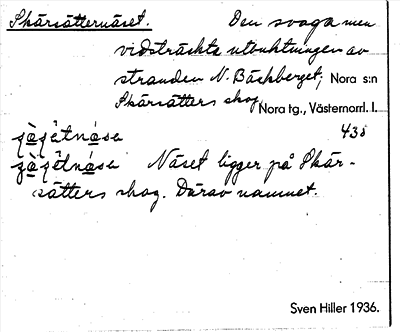 Skärsätternäset. Den svaga men
vidsträckta utbuktningen av
stranden N. Bäckberget; Nora s:n
Skärsätters skog Nora tg., Västernorrl. l.
430
Näset ligger på Skär-
sätters skog. Därav namnet.
Sven Hiller 1936.